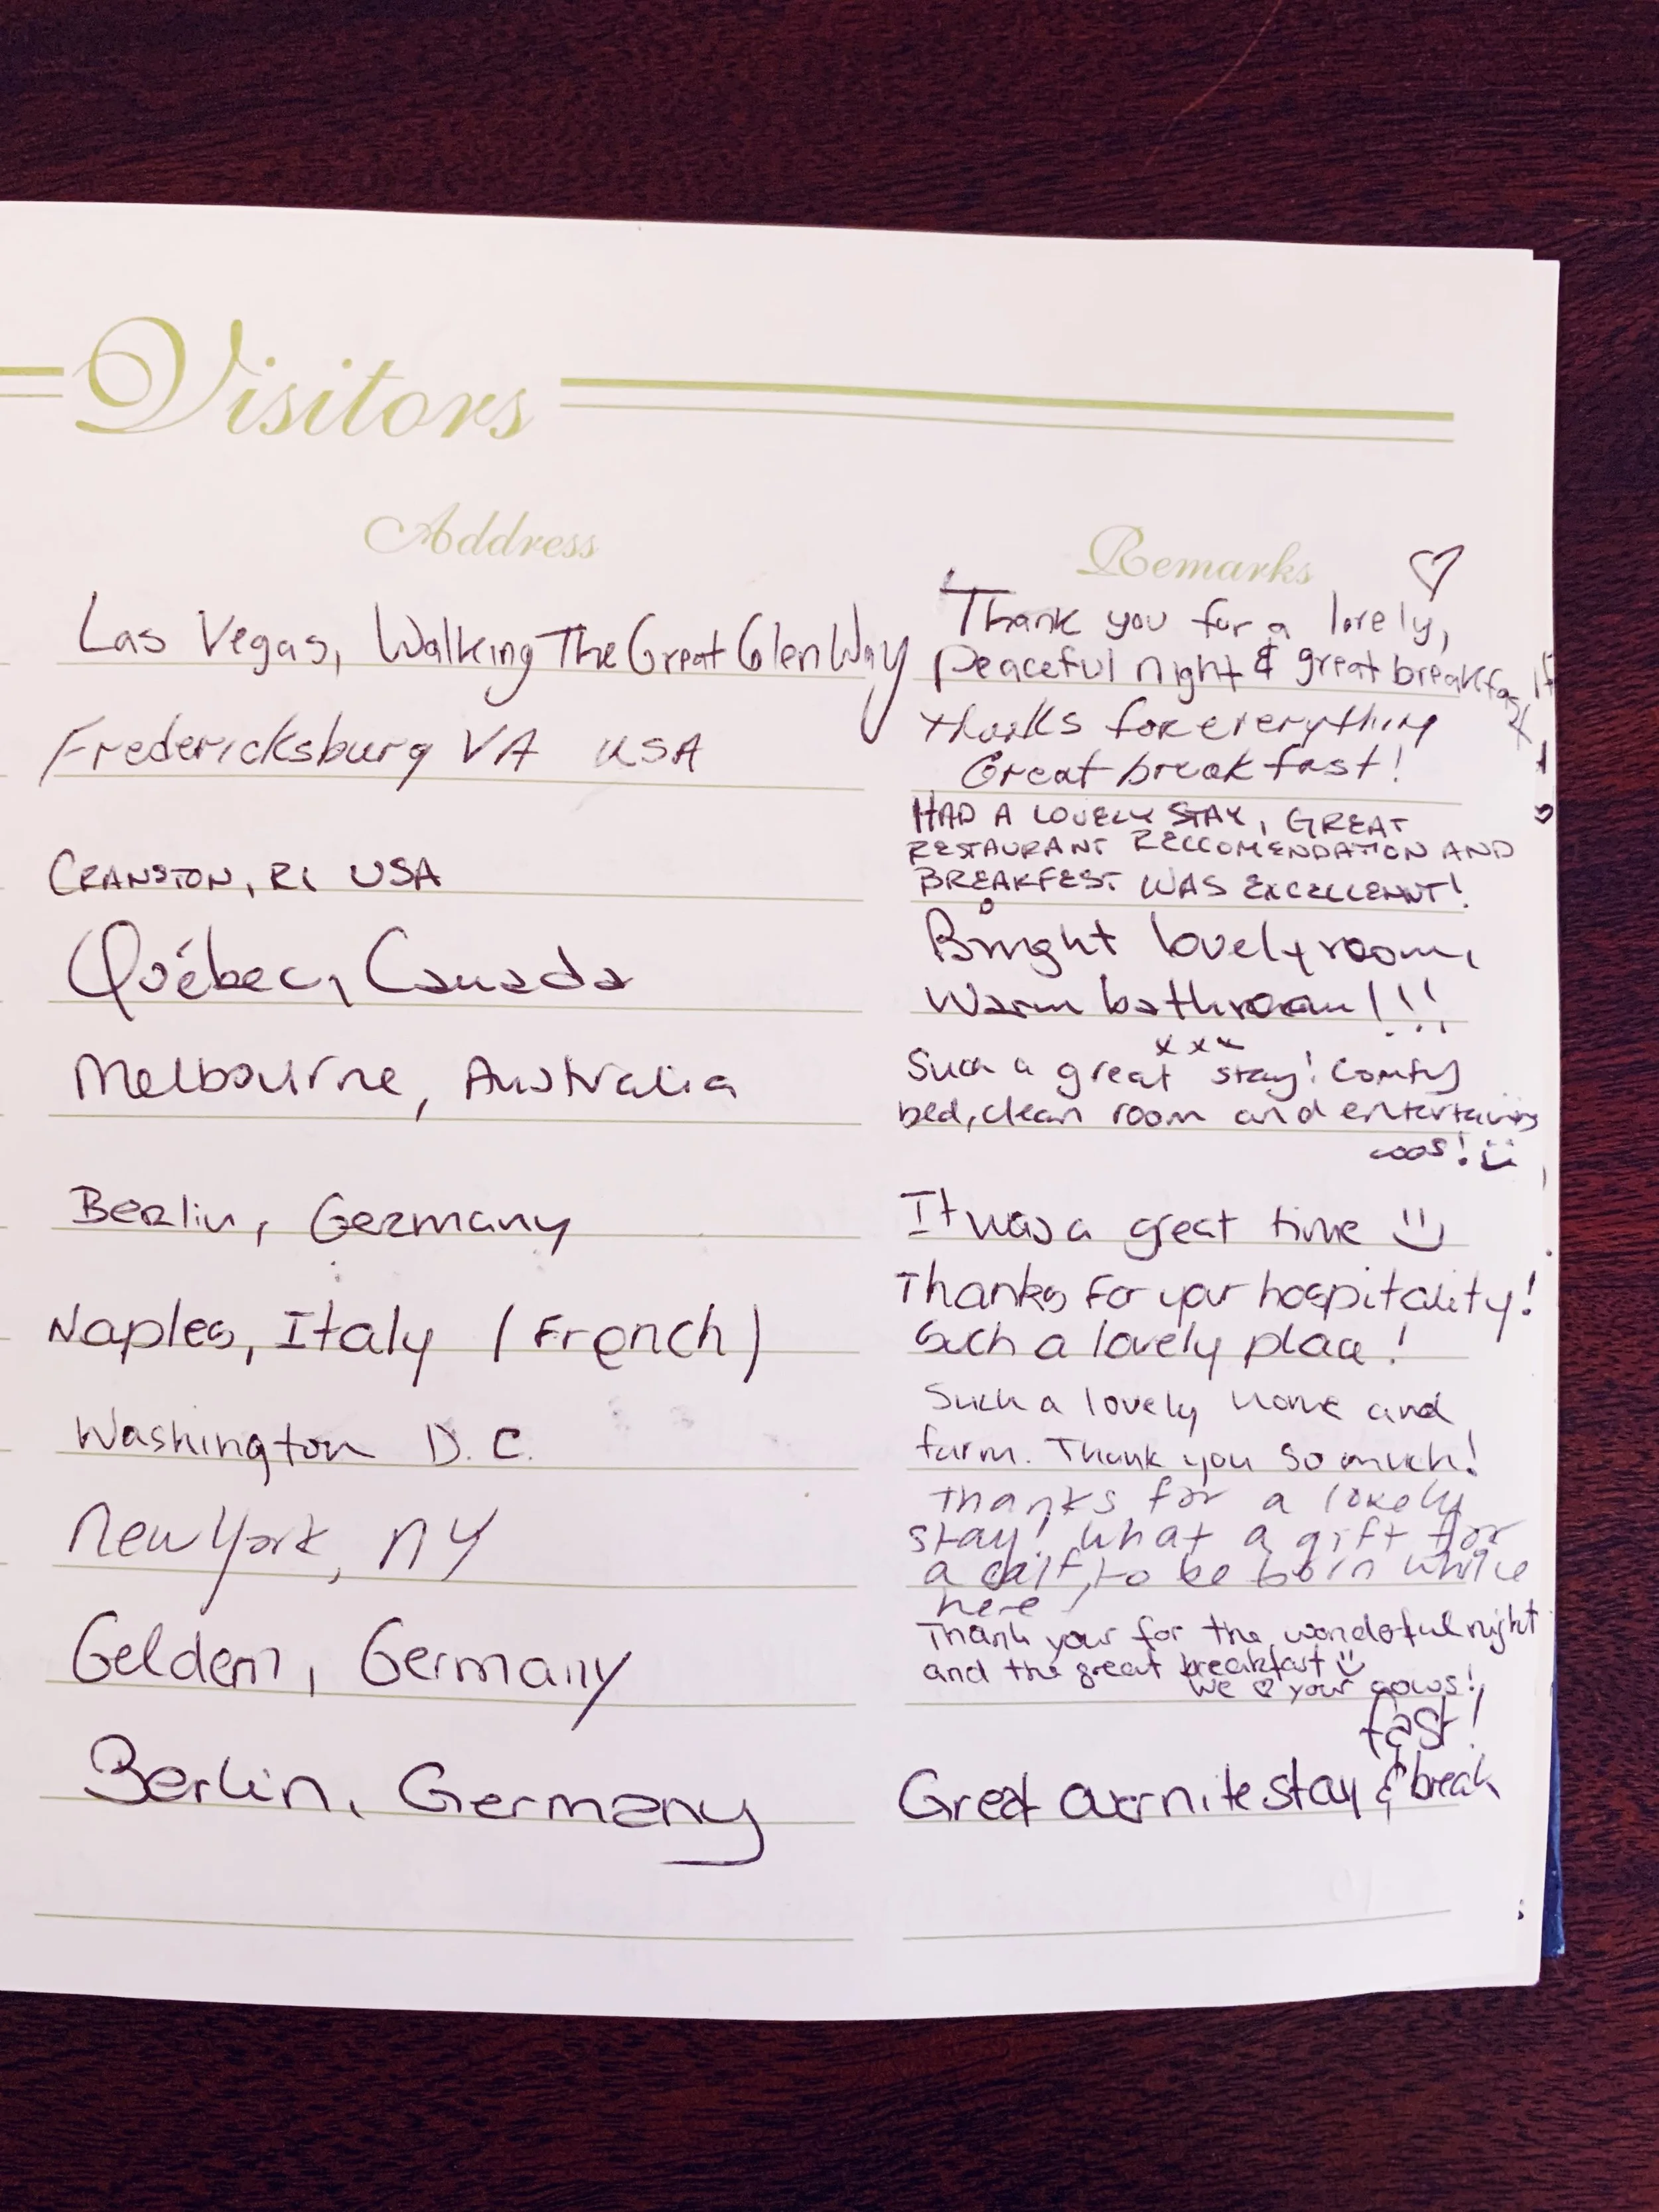 Visitors
Address
Remarks
Las Vegas, Walking The Great Glen Way
Thank you for a lovely,
peaceful night & great breakfast
Fredericksburg VA USA
thanks for everything
Great breakfast!
Cranston, RI USA
HAD A LOVELY STAY, GREAT
RESTAURANT RECCOMENDATION AND
BREAKFEST WAS EXCELLENNT!
Québec, Canada
Bright lovely room,
Warm bathroom!!!
xxx
Melbourne, Australia
Such a great stay! Comfy
bed, clean room and entertaining
coos!
Berlin, Germany
It was a great time
Naples, Italy (French)
Thanks for your hospitality!
Such a lovely place!
Washington D.C.
Such a lovely home and
farm. Thank you so much!
New York, NY
Thanks for a lovely
stay! What a gift for
a calf, to be born while
here!
Geldern, Germany
Thank your for the wonderful night
and the great breakfast
We ♡ your cows!
Berlin, Germany
Great overnite stay & break
fast!